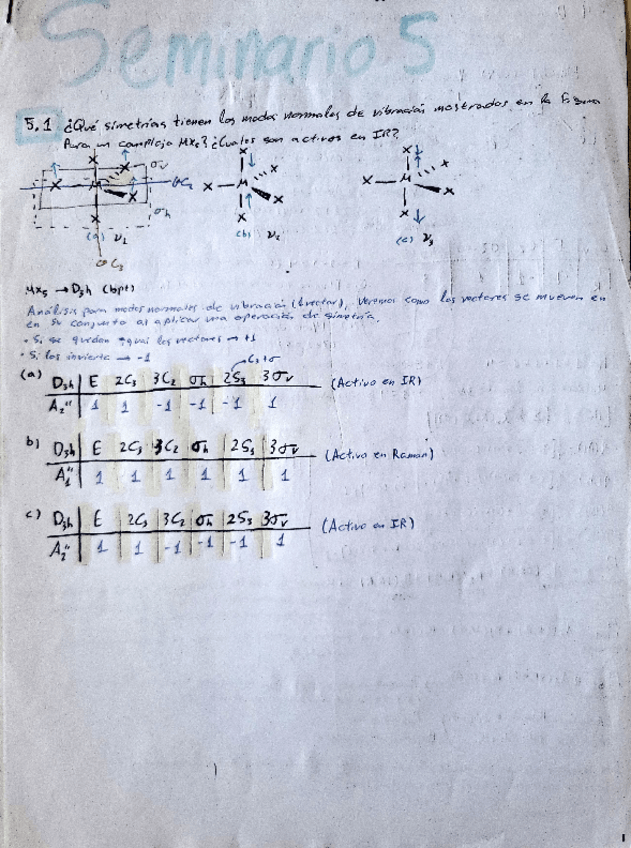 Seminario 5
5.1 ¿Qué simetrías tienen los modos normales de vibración mostrados en la Figura
Para un complejo MX5? ¿Cuales son activos en IR?
X X σv X X
X M C2 X M X X M X
X σh X X
X X X
(a) ν1 (b) ν2 (c) ν3
C3
MX5 → D3h (bpt)
Análisis para modos normales de vibración (1 vector), Veremos como los vectores se mueven en
en su conjunto al aplicar una operación de simetría.
• Si se quedan igual los vectores → +1
• Si los invierte → -1
C3+σ
(a) D3h E 2C3 3C2 σh 2S3 3σv (Activo en IR)
A2" 1 1 -1 -1 -1 1
b) D3h E 2C3 3C2 σh 2S3 3σv (Activo en Raman)
A1" 1 1 1 1 1 1
c) D3h E 2C3 3C2 σh 2S3 3σv (Activo en IR)
A2" 1 1 -1 -1 -1 1
1